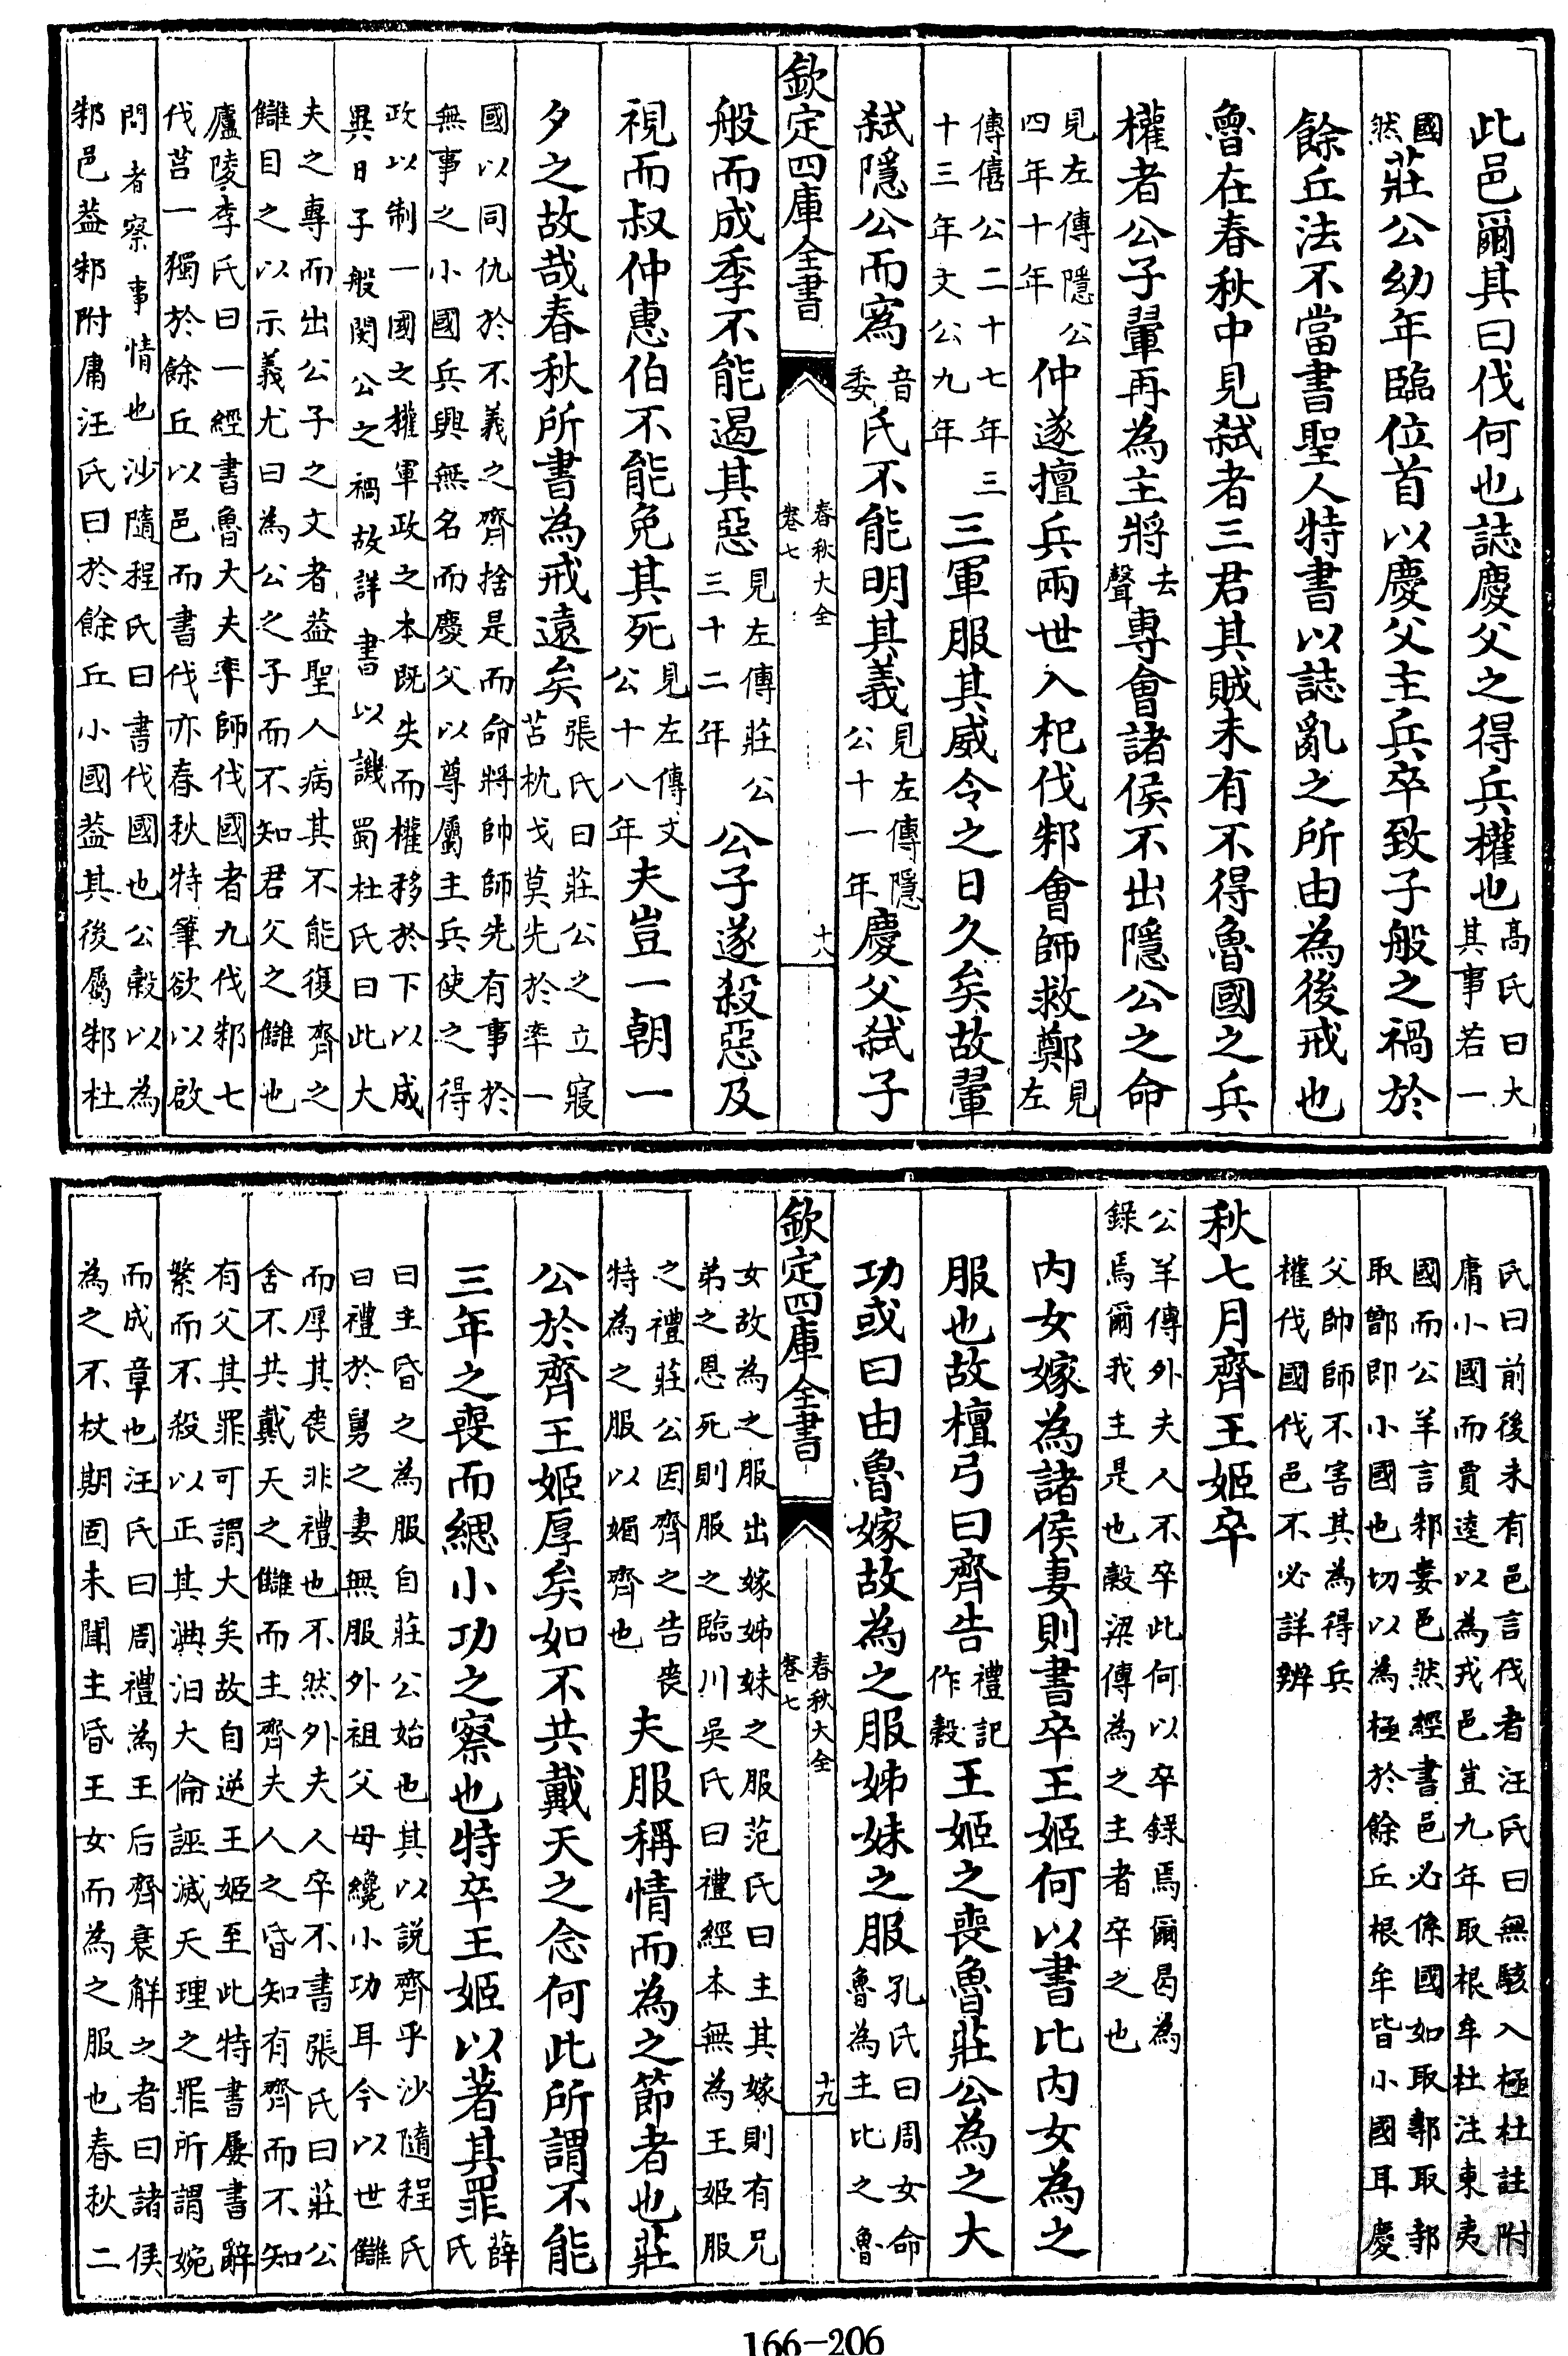 此邑爾其曰伐何也誌慶父之得兵權也高氏曰大其事若一
國然莊公幼年臨位首以慶父主兵卒致子般之禍於
餘丘法不當書聖人特書以誌亂之所由為後戒也
魯在春秋中見弑者三君其賊未有不得魯國之兵
權者公子翬再為主將去聲專會諸侯不出隱公之命
見左傳隱公四年十年仲遂擅兵兩世入杞伐邾會師救鄭見左
傳僖公二十七年三十三年文公九年三軍服其威令之日久矣故翬
弑隱公而寪音委氏不能明其義見左傳隱公十一年慶父弑子
欽定四庫全書
春秋大全
卷七
十八
般而成季不能遏其惡見左傳莊公三十二年公子遂殺惡及
視而叔仲惠伯不能免其死見左傳文公十八年夫豈一朝一
夕之故哉春秋所書為戒遠矣張氏曰莊公之立寢苫枕戈莫先於率一
國以同仇於不義之齊捨是而命將帥師先有事於
無事之小國兵興無名而慶父以尊屬主兵使之得
政以制一國之權軍政之本既失而權移於下以成
異日子般閔公之禍故詳書以譏蜀杜氏曰此大
夫之專而出公子之文者益聖人病其不能復齊之
讎目之以示義尤曰為公之子而不知君父之讎也
廬陵李氏曰一經書魯大夫率師伐國者九伐邾七
伐莒一獨於餘丘以邑而書伐亦春秋特筆欲以啟
問者察事情也沙隨程氏曰書伐國也公穀以為
邾邑益邾附庸汪氏曰於餘丘小國益其後屬邾杜
氏曰前後未有邑言伐者汪氏曰無駭入極杜註附
庸小國而賈逵以為戎邑豈九年取根牟杜注東夷
國而公羊言邾婁邑然經書邑必係國如取鄟取邿
取鄫即小國也切以為極於餘丘根牟皆小國耳慶
父帥師不害其為得兵
權伐國伐邑不必詳辨
秋七月齊王姬卒
公羊傳外夫人不卒此何以卒錄焉爾曷為
錄焉爾我主是也穀梁傳為之主者卒之也
內女嫁為諸侯妻則書卒王姬何以書比內女為之
服也故檀弓曰齊告禮記作穀王姬之喪魯莊公為之大
功或曰由魯嫁故為之服姊妹之服孔氏曰周女命魯為主比之魯
欽定四庫全書
春秋大全
卷七
十九
女故為之服出嫁姊妹之服范氏曰主其嫁則有兄
弟之恩死則服之臨川吳氏曰禮經本無為王姬服
之禮莊公因齊之告喪特為之服以媚齊也夫服稱情而為之節者也莊
公於齊王姬厚矣如不共戴天之念何此所謂不能
三年之喪而緦小功之察也特卒王姬以著其罪薛氏
曰主昏之為服自莊公始也其以說齊乎沙隨程氏
曰禮於舅之妻無服外祖父母纔小功耳今以世讎
而厚其喪非禮也不然外夫人卒不書張氏曰莊公
舍不共戴天之讎而主齊夫人之昏知有齊而不知
有父其罪可謂大矣故自逆王姬至此特書屢書辭
繁而不殺以正其淟汩大倫誣滅天理之罪所謂婉
而成章也汪氏曰周禮為王后齊衰解之者曰諸侯
為之不杖期固未聞主昏王女而為之服也春秋二
166-206